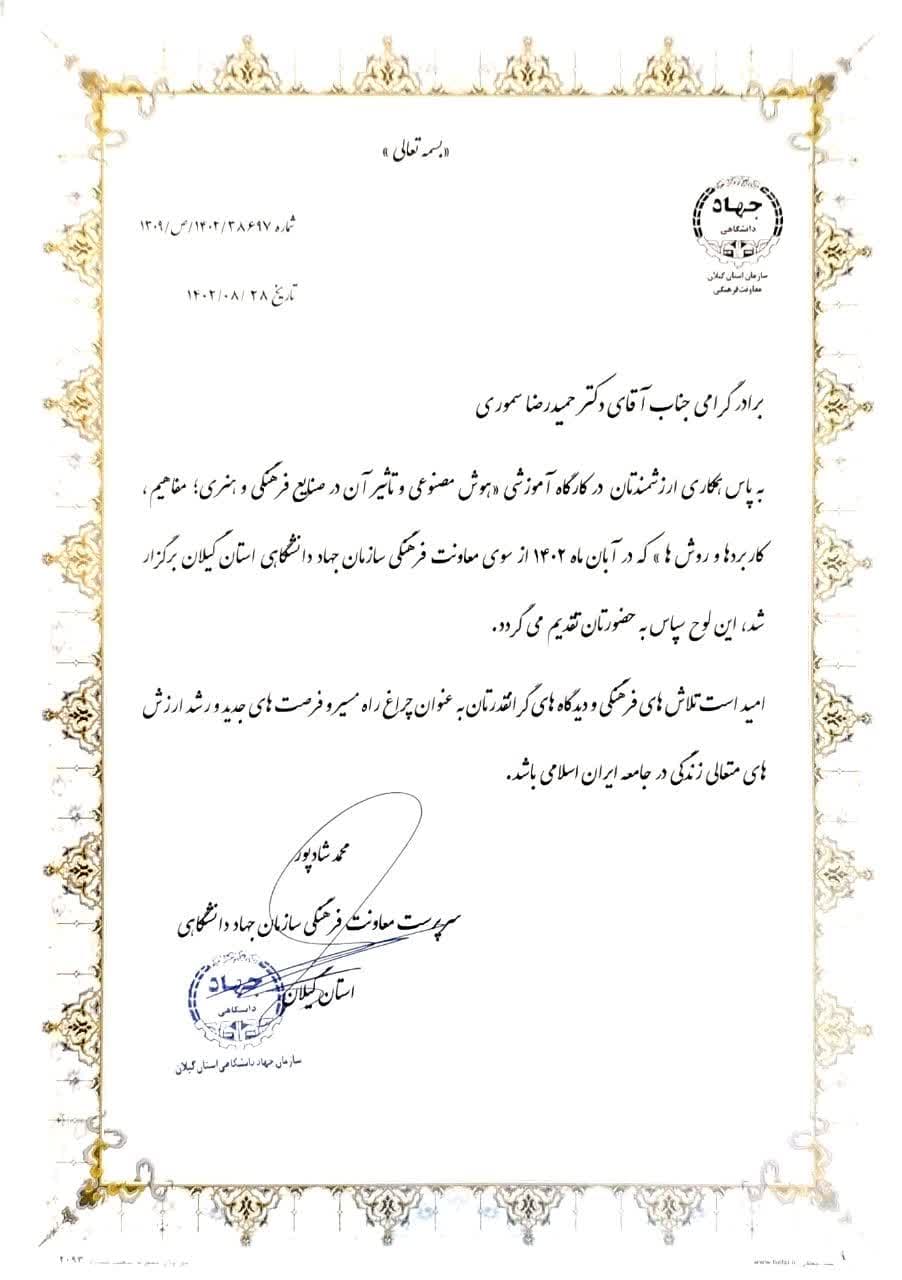 «بسمه تعالی»
جهاد
دانشگاهی
سازمان استان گیلان
معاونت فرهنگی
شماره ۱۴۰۲/۳۸۶۹۷/ص/۱۳۰۹
تاریخ ۲۸ /۱۴۰۲/۰۸
برادر گرامی جناب آقای دکتر حمیدرضا سموری
به پاس همکاری ارزشمندتان در کارگاه آموزشی «هوش مصنوعی و تاثیر آن در صنایع فرهنگی و هنری؛ مفاهیم ،
کاربردها و روش ها » که در آبان ماه ۱۴۰۲ از سوی معاونت فرهنگی سازمان جهاد دانشگاهی استان گیلان برگزار
شد، این لوح سپاس به حضورتان تقدیم می گردد.
امید است تلاش های فرهنگی و دیدگاه های گرانقدرتان به عنوان چراغ راه مسیر و فرصت های جدید و رشد ارزش
های متعالی زندگی در جامعه ایران اسلامی باشد.
محمد شادپور
سرپرست معاونت فرهنگی سازمان جهاد دانشگاهی
استان گیلان
جهاد
دانشگاهی
سازمان جهاد دانشگاهی استان گیلان
۲۰۹۳